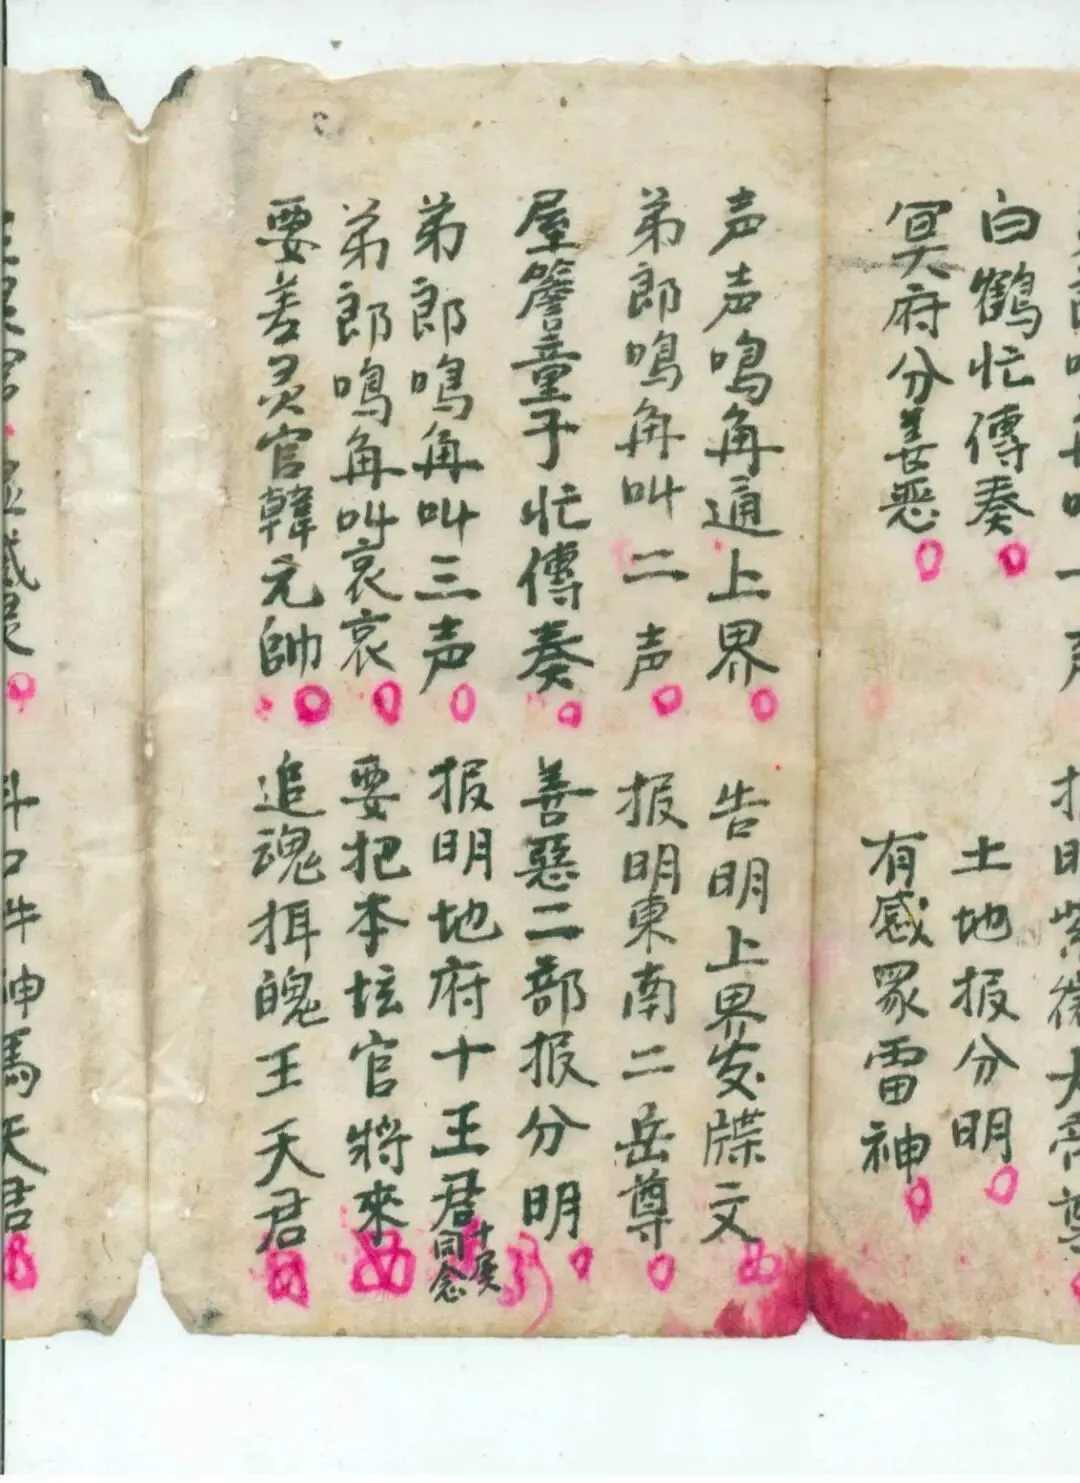 报明紫微大帝尊
白鹤忙傳奏 土地报分明
冥府分善恶 有感眾雷神
声声鳴角通上界 告明上界发牒文
弟郎鳴角叫二声 报明東南二岳尊
屋簷童子忙傳奏 善惡二部报分明
弟郎鳴角叫三声 报明地府十王君
十展同念
弟郎鳴角叫哀哀 要把本坛官将來
要差灵官韓元帥 追魂挕魄王天君
神馬天君